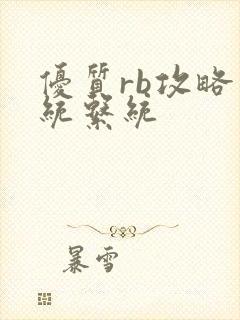 優質rb攻略
統繫統
暴雪